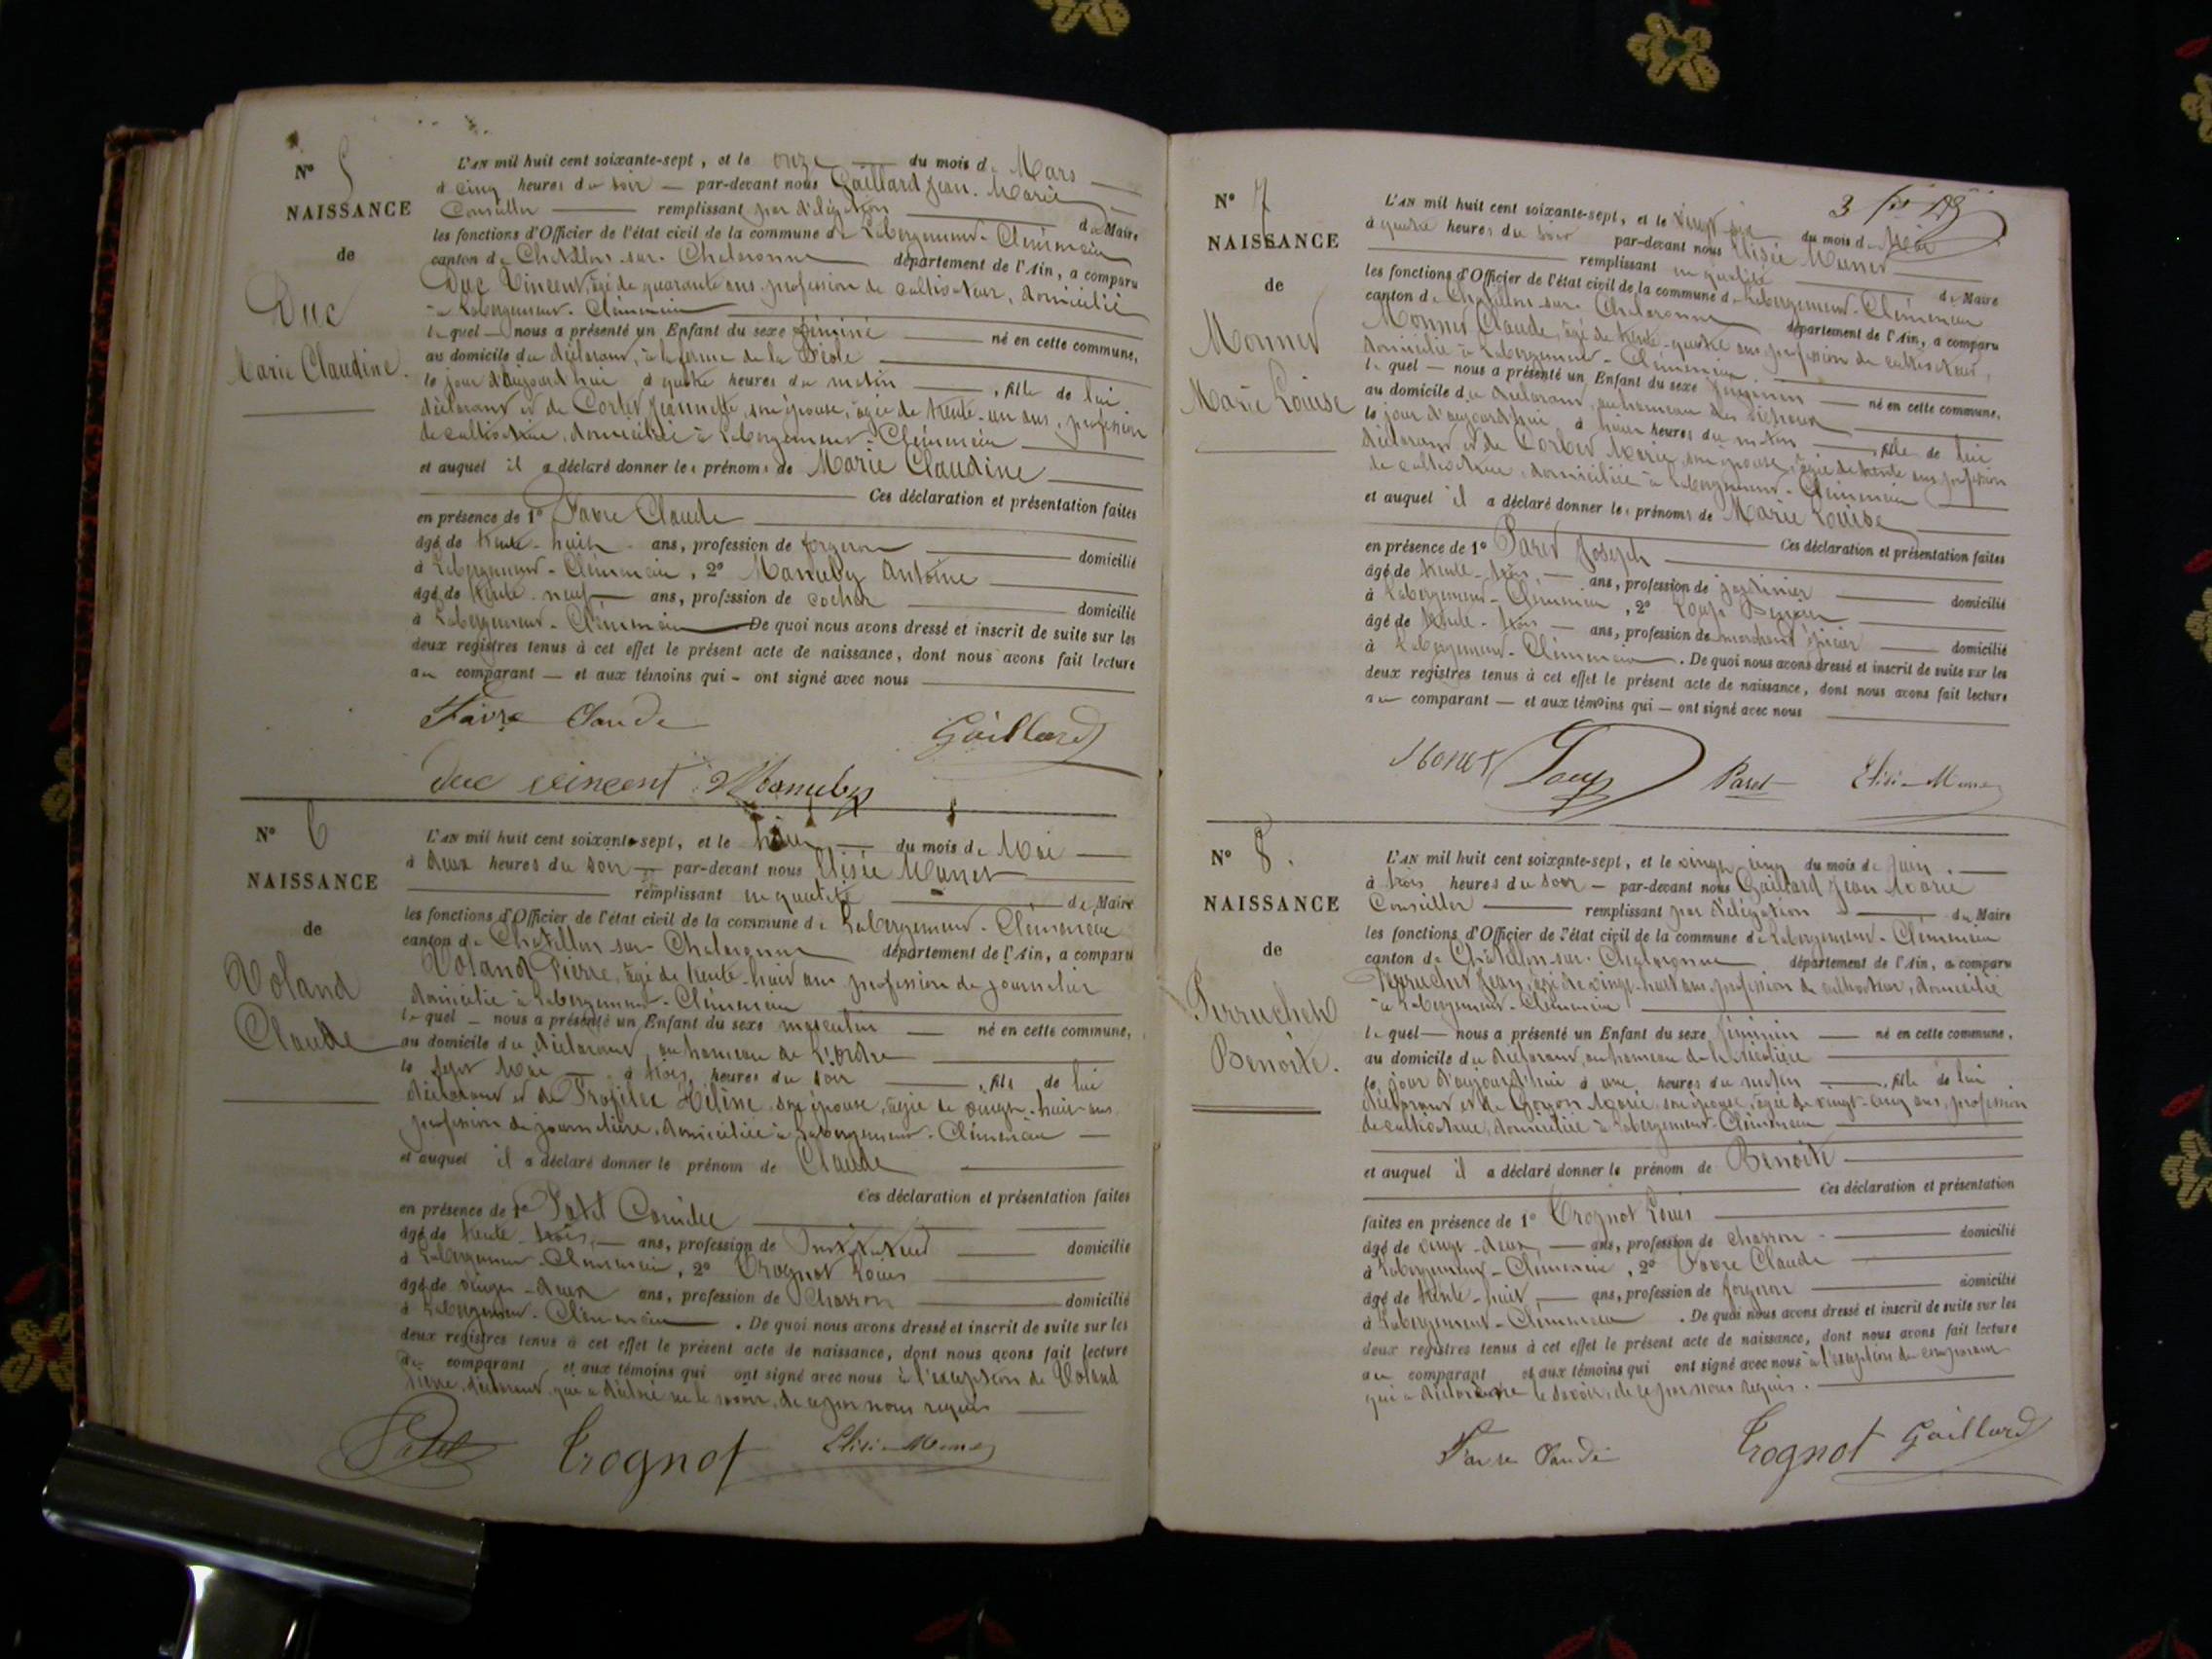 N° 5
NAISSANCE
de
Duc
Marie Claudine.
L'AN mil huit cent soixante-sept, et le onze du mois de Mars
à cinq heures du soir par-devant nous Gaillard Jean-Marie
Conseiller remplissant par délégation du Maire
les fonctions d'Officier de l'état civil de la commune de Labergement-Clémenciu
canton de Chatillon-sur-Chalaronne département de l'Ain, a comparu
Duc Vincent, âgé de quarante ans, profession de cultivateur, domicilié
à Labergement-Clémenciu
lequel nous a présenté un Enfant du sexe féminin né en cette commune,
au domicile du déclarant, à la ferme de la
le jour d'aujourd'hui à quatre heures du matin , fille de lui
déclarant et de Cortet Jeannette, son épouse, âgée de trente-un ans, profession
de cultivatrice, domiciliée à Labergement-Clémenciu
et auquel il a déclaré donner les prénoms de Marie Claudine
Ces déclaration et présentation faites
en présence de 1° Favre Claude
âgé de trente-huit ans, profession de forgeron domicilié
à Labergement-Clémenciu, 2° Manuby Antoine
âgé de trente-neuf ans, profession de cocher domicilié
à Labergement-Clémenciu De quoi nous avons dressé et inscrit de suite sur les
deux registres tenus à cet effet le présent acte de naissance, dont nous avons fait lecture
au comparant et aux témoins qui ont signé avec nous
Favre Claude Gaillard
duc vincent Manuby
N° 6
NAISSANCE
de
Voland
Claude
L'AN mil huit cent soixante-sept, et le huit du mois de Mai
à deux heures du soir par-devant nous Elisée Monnet
remplissant en qualité de Maire
les fonctions d'Officier de l'état civil de la commune de Labergement-Clémenciu
canton de Chatillon-sur-Chalaronne département de l'Ain, a comparu
Voland Pierre, âgé de trente-huit ans profession de journalier
domicilié à Labergement-Clémenciu
lequel nous a présenté un Enfant du sexe masculin né en cette commune,
au domicile du déclarant, au hameau de
le sept Mai à trois heures du soir , fils de lui
déclarant et de Hélène, son épouse, âgée de vingt-huit ans
profession de journalière, domiciliée à Labergement-Clémenciu
et auquel il a déclaré donner le prénom de Claude
Ces déclaration et présentation faites
en présence de 1° Patel
âgé de trente-trois ans, profession de Instituteur domicilié
à Labergement-Clémenciu, 2° Trognot Louis
âgé de vingt-deux ans, profession de Charron domicilié
à Labergement-Clémenciu. De quoi nous avons dressé et inscrit de suite sur les
deux registres tenus à cet effet le présent acte de naissance, dont nous avons fait lecture
au comparant et aux témoins qui ont signé avec nous à l'exception de Voland
Pierre, déclarant, qui a déclaré ne le savoir, de ce par nous requis
Patel Trognot Elisée Monnet
3
N° 7
NAISSANCE
de
Monnet
Marie Louise
L'AN mil huit cent soixante-sept, et le vingt du mois de Mai
à quatre heures du soir par-devant nous Elisée Monnet
remplissant en qualité de Maire
les fonctions d'Officier de l'état civil de la commune de Labergement-Clémenciu
canton de Chatillon-sur-Chalaronne département de l'Ain, a comparu
Monnet Claude, âgé de trente-quatre ans profession de cultivateur,
domicilié à Labergement-Clémenciu
lequel nous a présenté un Enfant du sexe féminin né en cette commune,
au domicile du déclarant, au hameau des
le jour d'aujourd'hui à heures du matin , fille de lui
déclarant et de Corbet Marie, son épouse, âgée de trente ans profession
de cultivatrice, domiciliée à Labergement-Clémenciu
et auquel il a déclaré donner les prénoms de Marie Louise
Ces déclaration et présentation faites
en présence de 1° Paret Joseph
âgé de trente-trois ans, profession de jardinier domicilié
à Labergement-Clémenciu, 2° Loup
âgé de trente-trois ans, profession de marchand épicier domicilié
à Labergement-Clémenciu. De quoi nous avons dressé et inscrit de suite sur les
deux registres tenus à cet effet le présent acte de naissance, dont nous avons fait lecture
au comparant et aux témoins qui ont signé avec nous
Monet Loup Paret Elisée Monnet
N° 8.
NAISSANCE
de
Perruchet
Benoite.
L'AN mil huit cent soixante-sept, et le vingt cinq du mois de Juin.
à trois heures du soir par-devant nous Gaillard Jean Marie
Conseiller remplissant par délégation du Maire
les fonctions d'Officier de l'état civil de la commune de Labergement-Clémenciu
canton de Chatillon-sur-Chalaronne département de l'Ain, a comparu
Perruchet Jean, âgé de vingt-huit ans, profession de cultivateur, domicilié
à Labergement-Clémenciu
lequel nous a présenté un Enfant du sexe féminin né en cette commune,
au domicile du déclarant, au hameau de la
le jour d'aujourd'hui à une heures du matin , fille de lui
déclarant et de Goyon Marie, son épouse, âgée de vingt-cinq ans, profession
de cultivatrice, domiciliée à Labergement-Clémenciu
et auquel il a déclaré donner le prénom de Benoite
Ces déclaration et présentation
faites en présence de 1° Trognot Louis
âgé de vingt-deux ans, profession de charron domicilié
à Labergement-Clémenciu, 2° Favre Claude
âgé de trente-huit ans, profession de forgeron domicilié
à Labergement-Clémenciu. De quoi nous avons dressé et inscrit de suite sur les
deux registres tenus à cet effet le présent acte de naissance, dont nous avons fait lecture
au comparant et aux témoins qui ont signé avec nous à l'exception du comparant
qui a déclaré ne le savoir, de ce par nous requis.
Favre Claude Trognot Gaillard